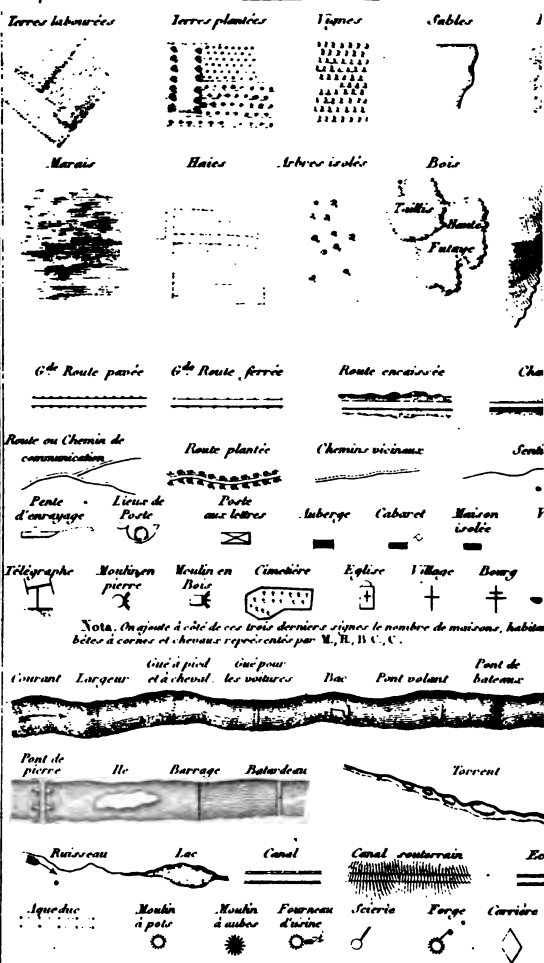 Terres labourées
Terres plantées
Vignes
Sables
Marais
Haies
Arbres isolés
Bois
Taillis
Haute
Futaye
Gde Route pavée
Gde Route ferrée
Route encaissée
Route ou Chemin de
communication
Route plantée
Chemins vicinaux
Pente
d'enrayage
Lieux de
Poste
Poste
aux lettres
Auberge
Cabaret
Maison
isolée
Télégraphe
Moulin en
pierre
Moulin en
Bois
Cimetière
Eglise
Village
Bourg
Nota. On ajoute à côté de ces trois derniers signes le nombre de maisons,
bêtes à cornes et chevaux représentés par M., H., B C., C.
Courant
Largeur
Gué à pied
et à cheval.
Gué pour
les voitures
Bac
Pont volant
Pont de
bateaux
Pont de
pierre
Ile
Barrage
Batardeau
Torrent
Ruisseau
Lac
Canal
Canal souterrain
Aqueduc
Moulin
à pots
Moulin
à aubes
Fourneau
d'usine
Scierie
Forge
Carrière